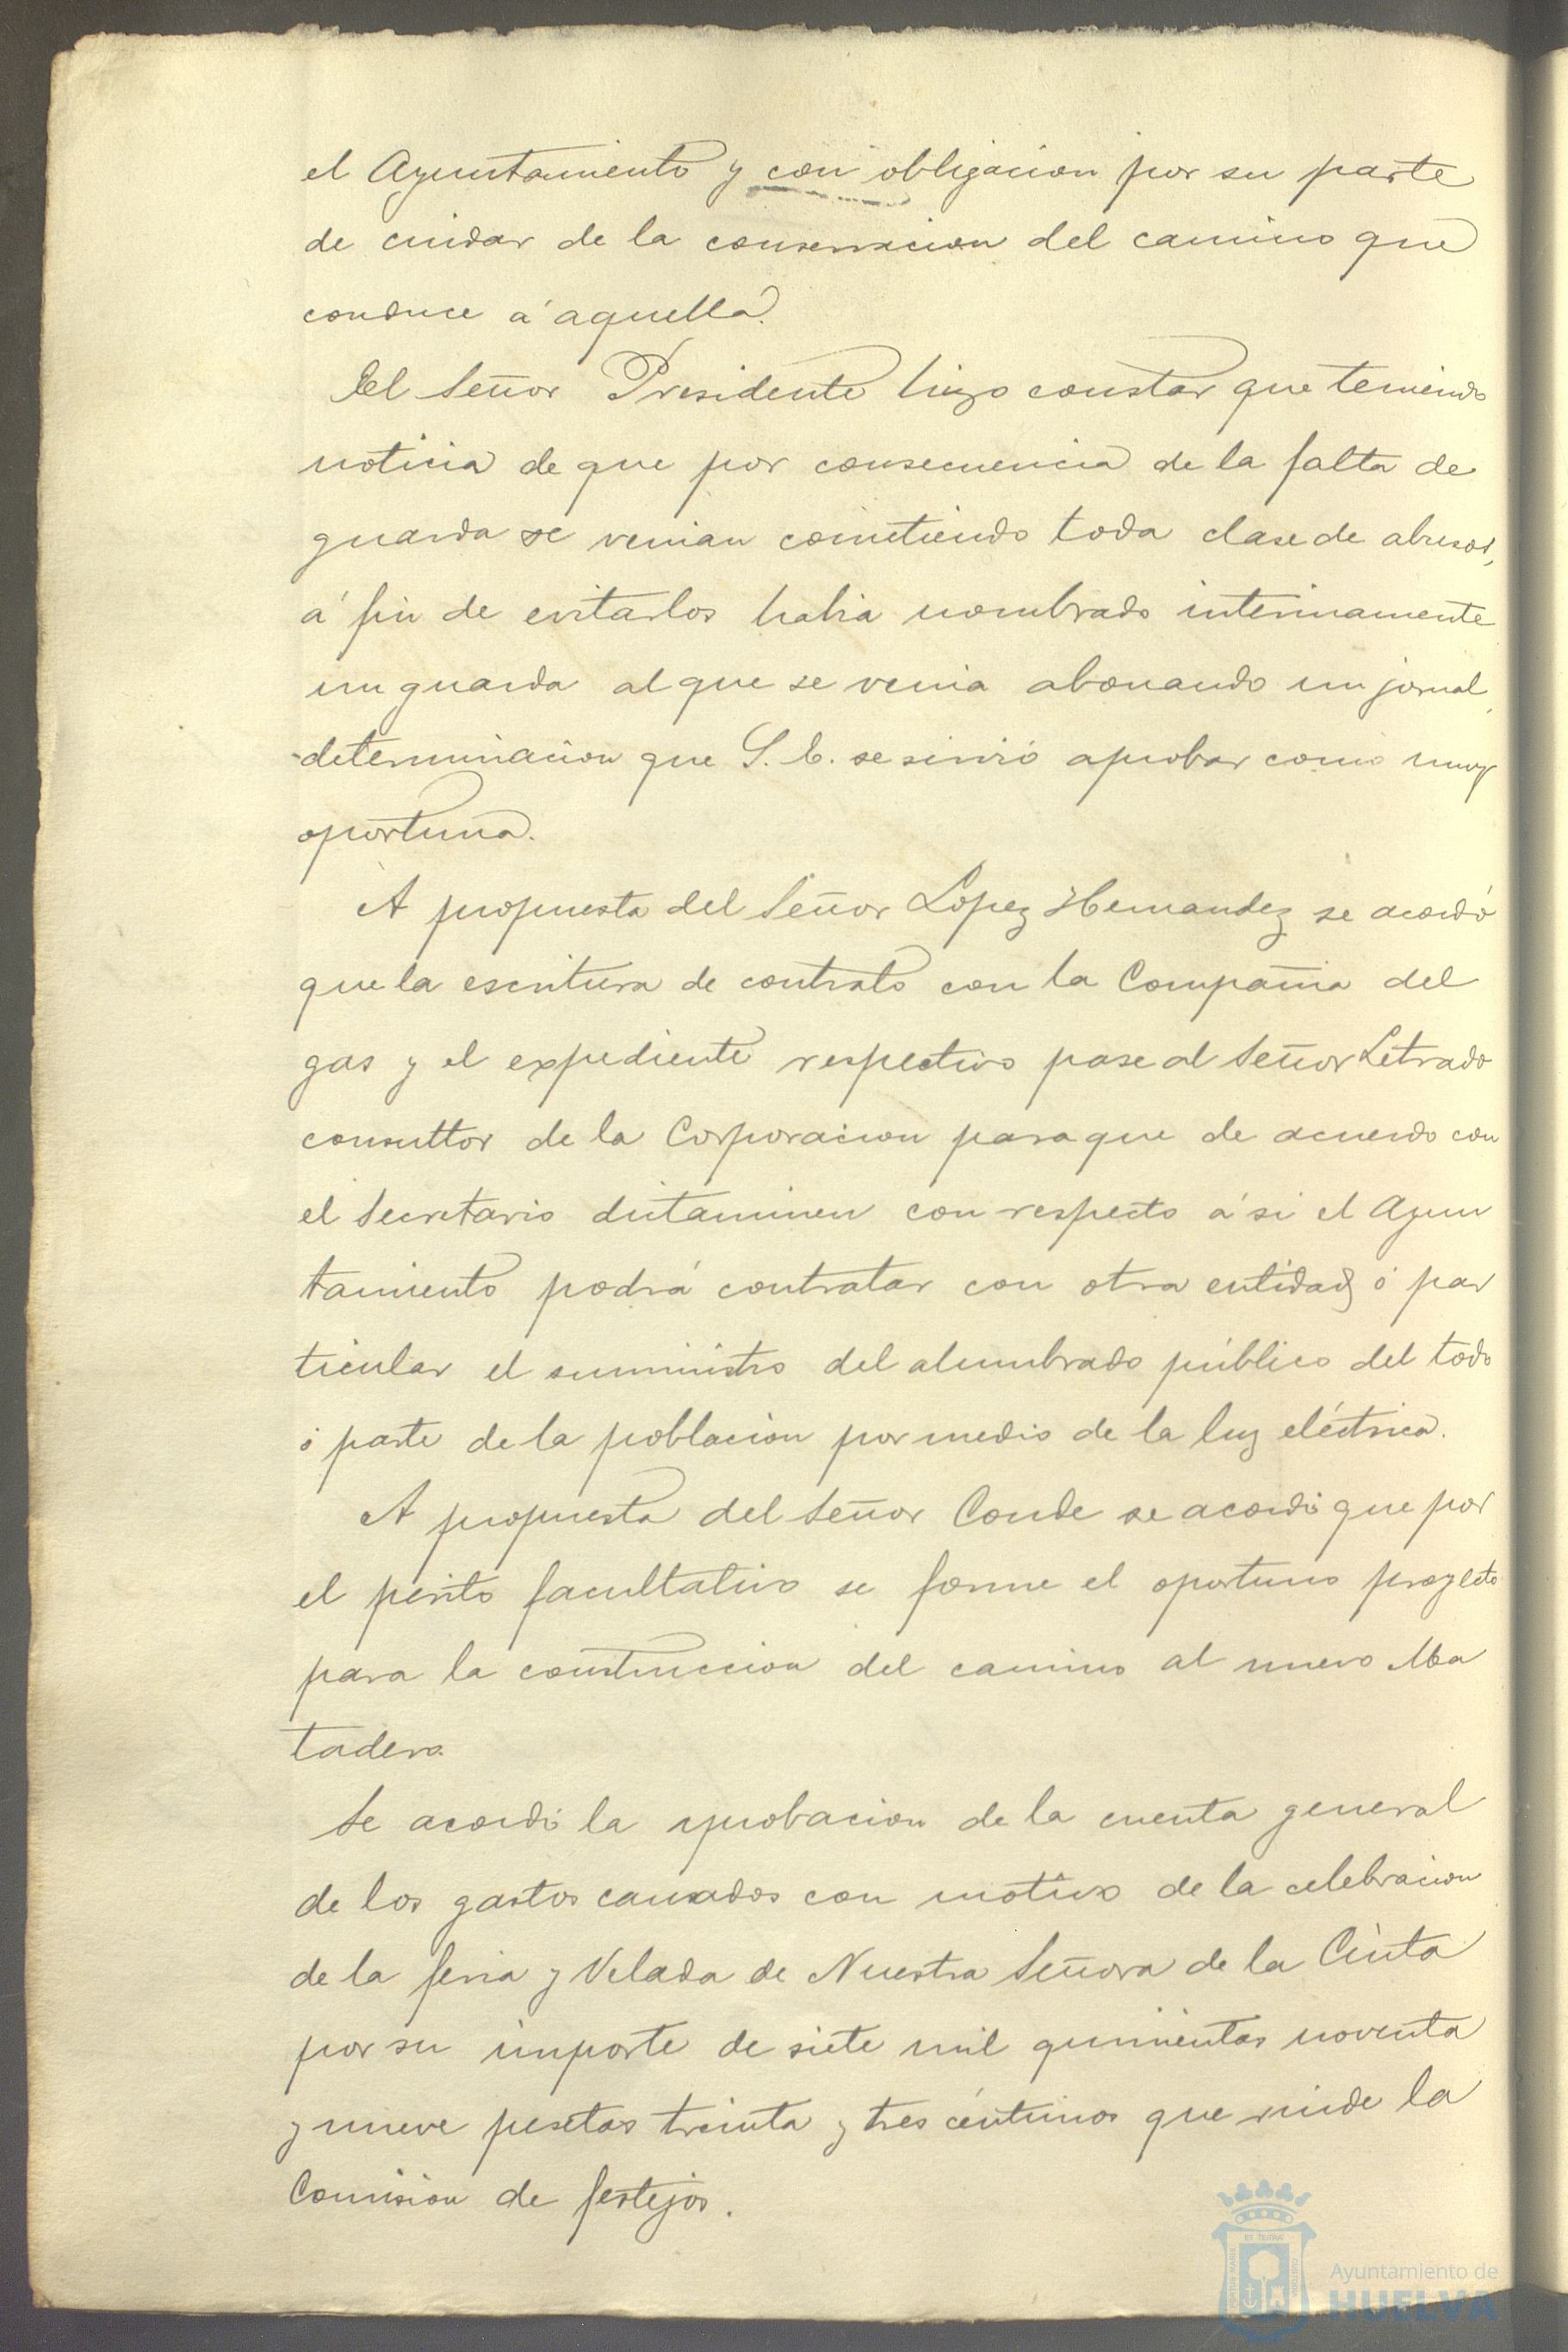 el Ayuntamiento y con obligacion por su parte
de cuidar de la conservacion del camino que
conduce á aquella.
El Señor Presidente hizo constar que teniendo
noticia de que por consecuencia de la falta de
guarda se venian cometiendo toda clase de abusos,
á fin de evitarlos habia nombrado interinamente
un guarda al que se venia abonando un jornal,
determinacion que S. E. se sirvió aprobar como muy
oportuna.
A propuesta del Señor Lopez Hernandez se acordó
que la escritura de contrato con la Compañia del
gas y el expediente respectivo pase al Señor Letrado
consultor de la Corporacion para que de acuerdo con
el Secretario dictaminen con respecto á si el Ayun
tamiento podrá contratar con otra entidad ó par
ticular el suministro del alumbrado público del todo
ó parte de la poblacion por medio de la luz eléctrica.
A propuesta del Señor Conde se acordó que por
el perito facultativo se forme el oportuno proyecto
para la construccion del camino al nuevo Ma
tadero.
Se acordó la aprobacion de la cuenta general
de los gastos causados con motivo de la celebracion
de la feria y Velada de Nuestra Señora de la Cinta
por su importe de siete mil quinientas noventa
y nueve pesetas treinta y tres céntimos que rinde la
Comision de festejos.
Ayuntamiento de
HUELVA